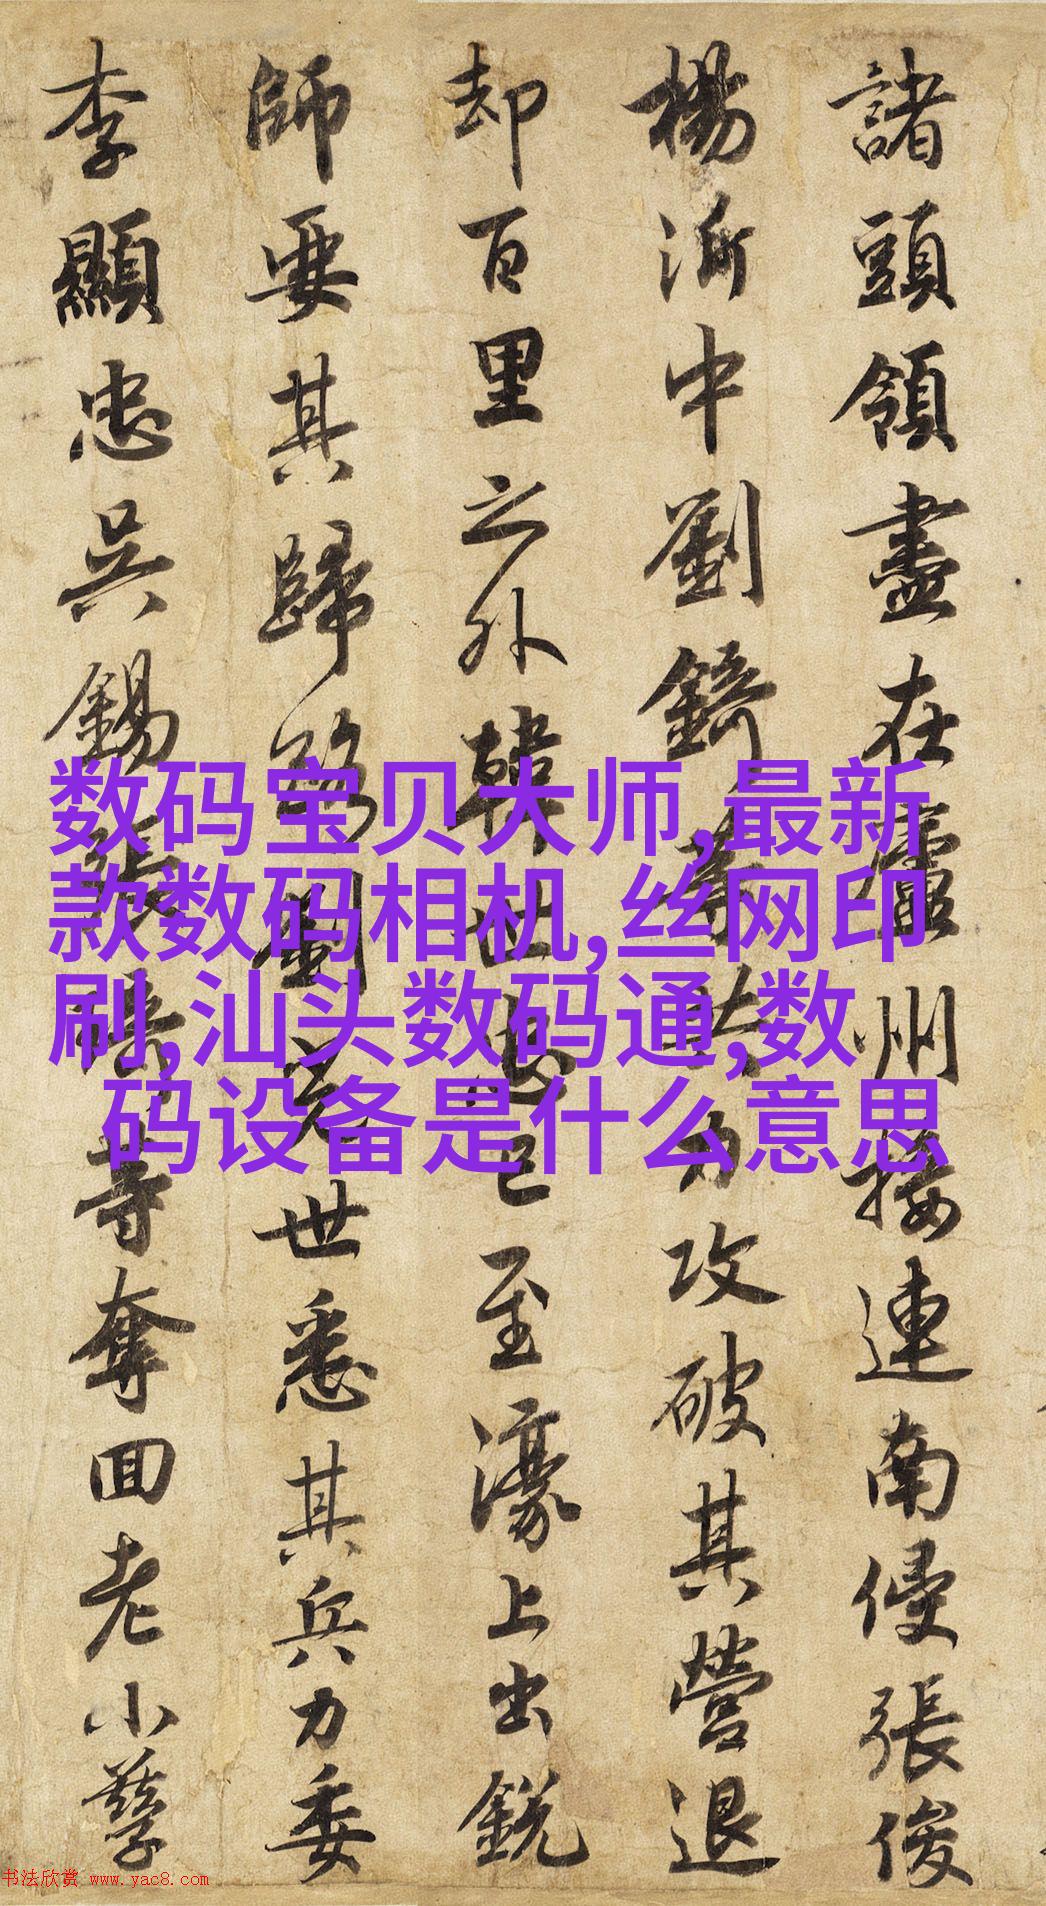 諸頭領盡在廬州接連南侵張俊
楊沂中劉錡等共力攻破其營退
却百里之外韓世忠已至濠上出銳
師要其歸劉光世悉其兵力委
李顯忠吳錫張琦等奪回老小孳
数码宝贝大师,最新
款数码相机,丝网印
刷,汕头数码通,数
码设备是什么意思
书法欣赏 www.yac8.com